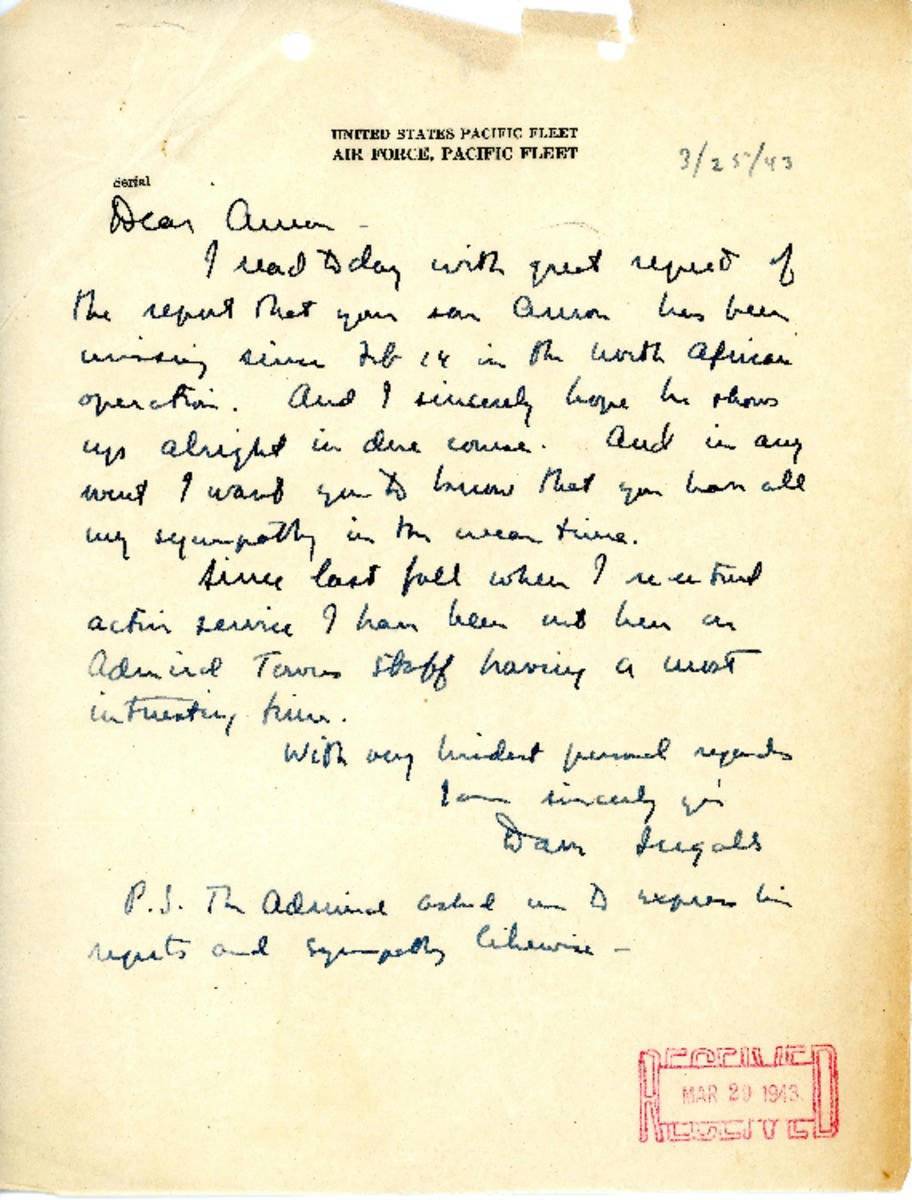 UNITED STATES PACIFIC FLEET
AIR FORCE, PACIFIC FLEET
3/25/43
Serial
Dear Amon -
I read today with great regret of
the report that your son Amon has been
missing since Feb 14 in the North African
operation. And I sincerely hope he shows
up alright in due course. And in any
event I want you to know that you have all
my sympathy in the mean time.
Since last fall when I reentered
active service I have been out here on
Admiral Towers staff having a most
interesting time.
With very kindest personal regards
I am sincerely yrs
Dave Ingalls
P.S. The Admiral asked me to express his
regrets and sympathy likewise -
RECEIVED
MAR 29 1943
RECEIVED